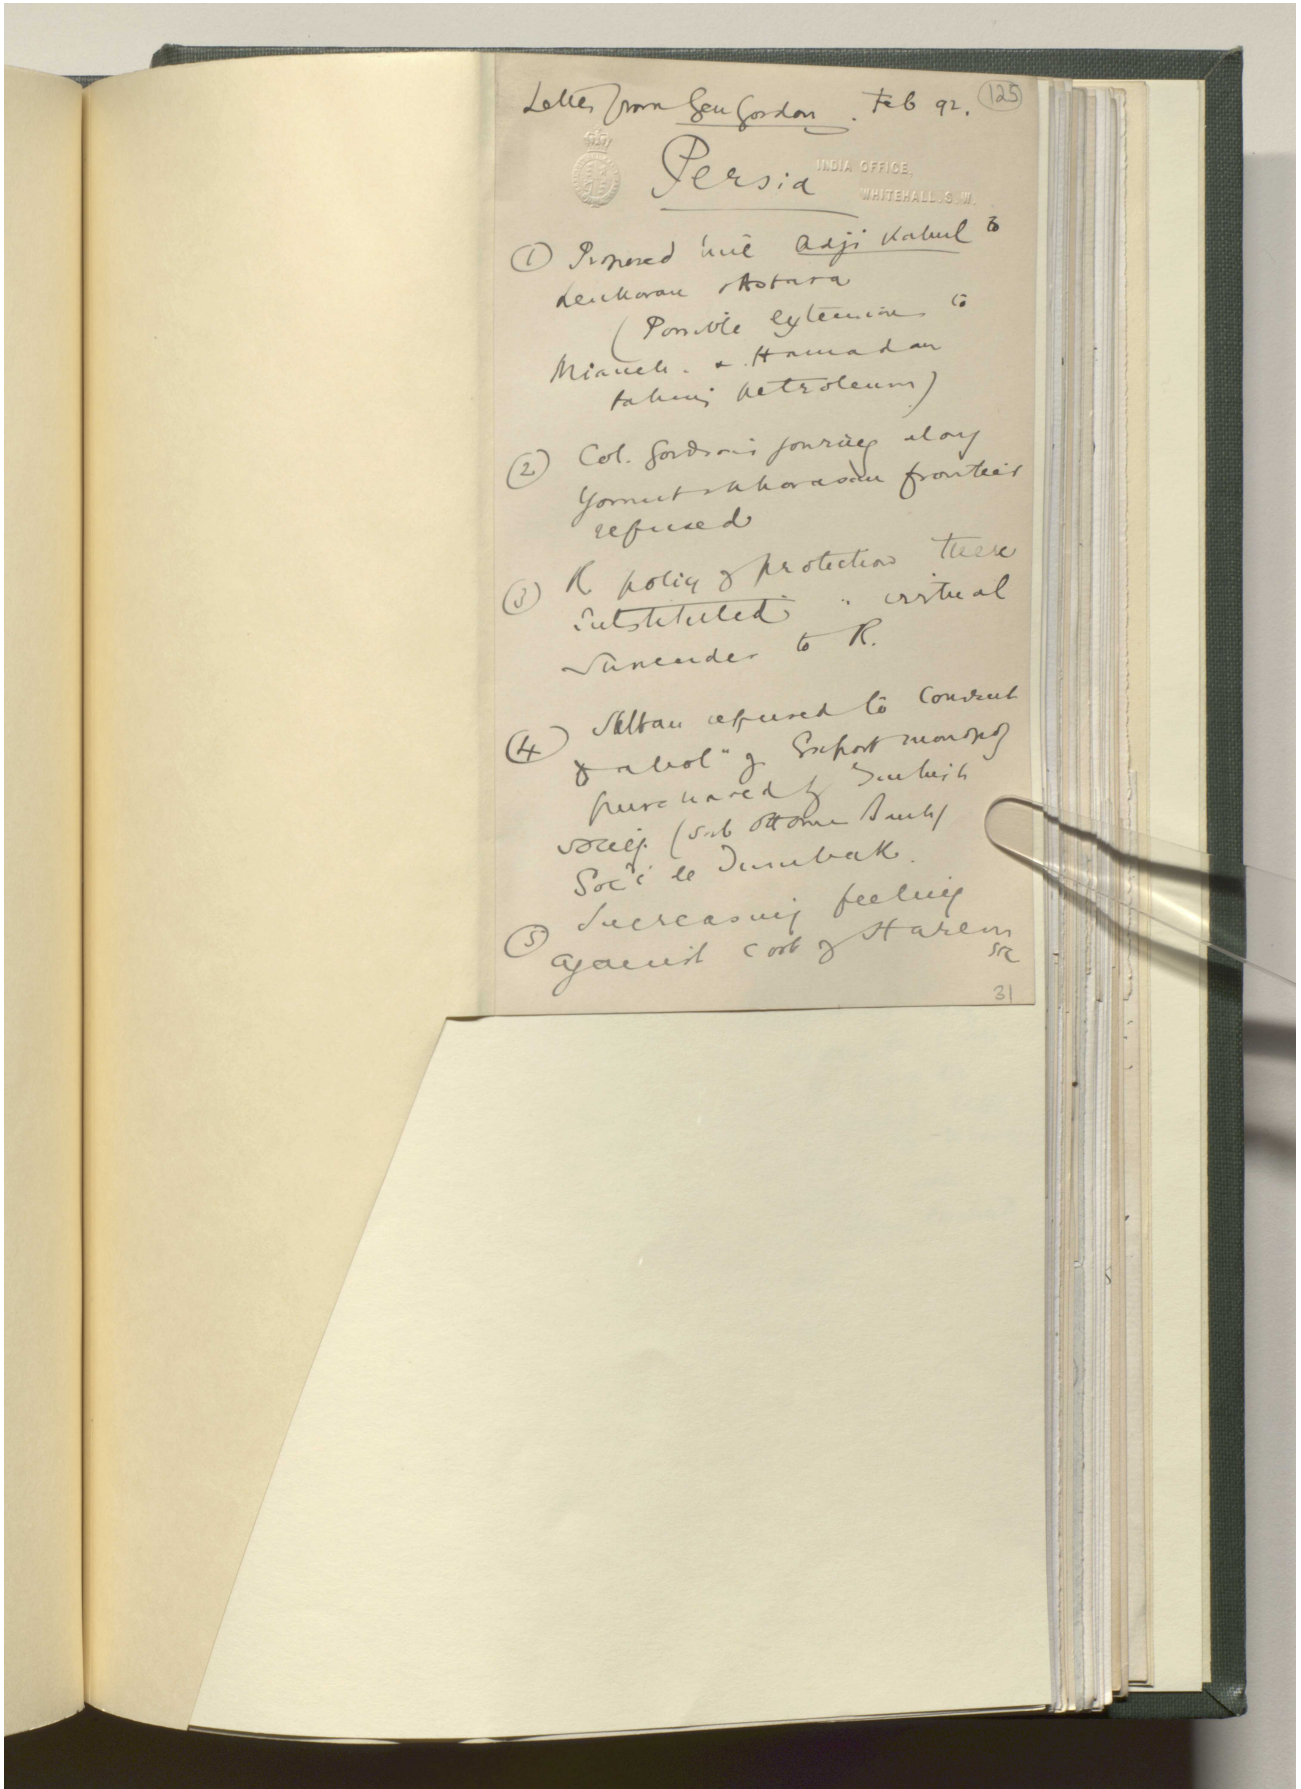 Letter from Gen Gordon. Feb 92.
125
Persia
INDIA OFFICE,
WHITEHALL. S.W.
① Proposed line Adji Kabul to
Lenkoran & Astara
(Possible extension to
Mianeh. & Hamadan
taking petroleum)
② Col. Gordon's journey along
Yomut & Khorasan frontier
refused
③ R policy of protection there
substituted virtual
surrender to R.
④ Sultan refused to consent
of abol" of Export monopoly
purchased by Turkish
society (sub Ottoman Bank)
Soc'é le Tumbak.
⑤ Increasing feeling
against cost of Harem
31